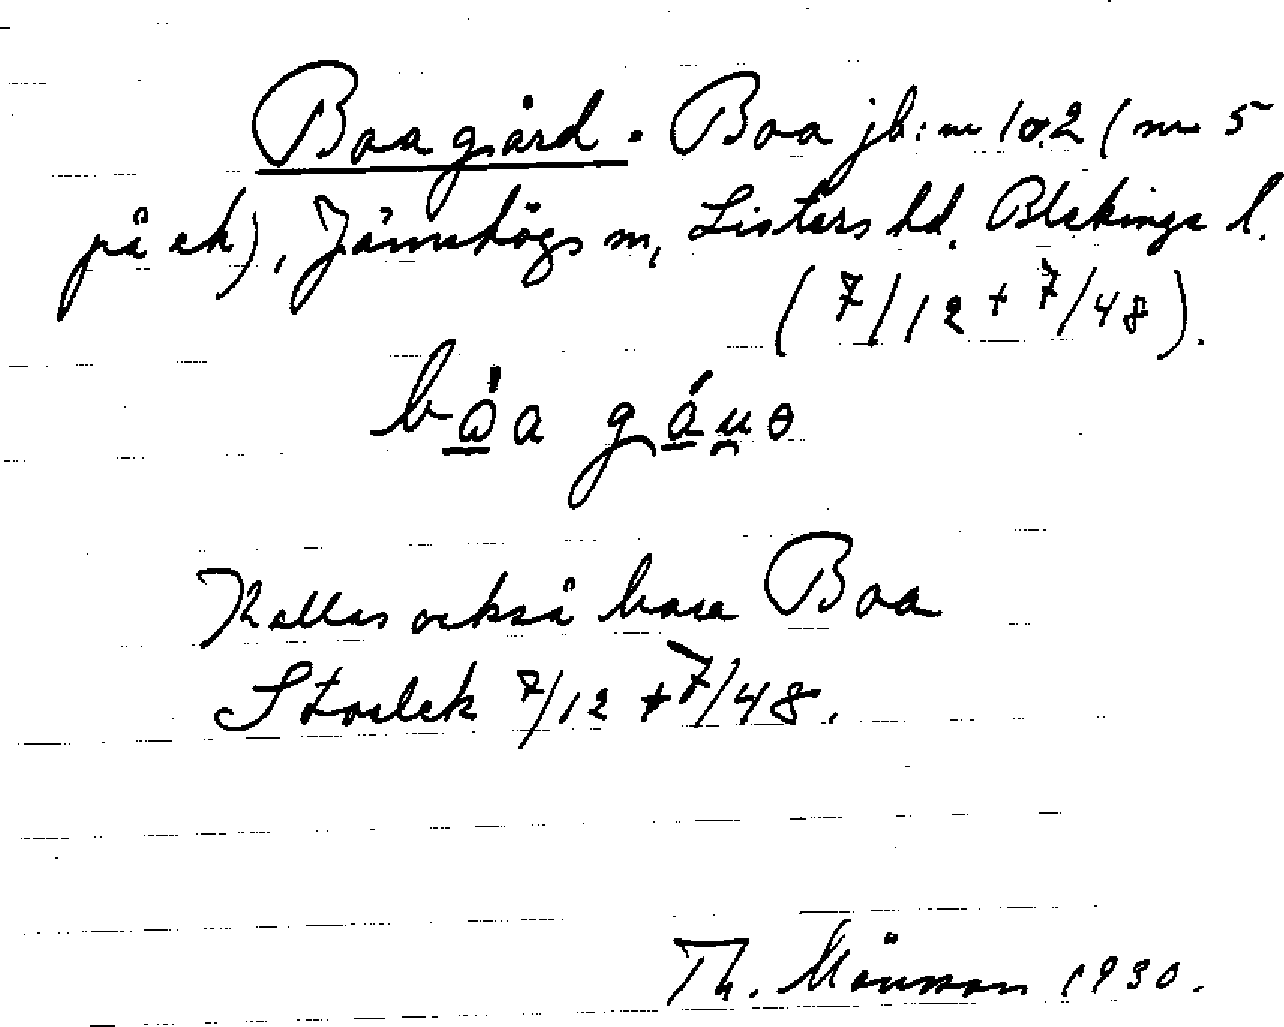 Boa gård. Boa jb: nr 1 o. 2 (nr 5
på ek), Jämshögs sn, Listers hd. Blekinge l.
(7/12 + 7/48).
Kallas också bara Boa
Storlek 7/12 + 7/48.
Th. Månsson 1930.